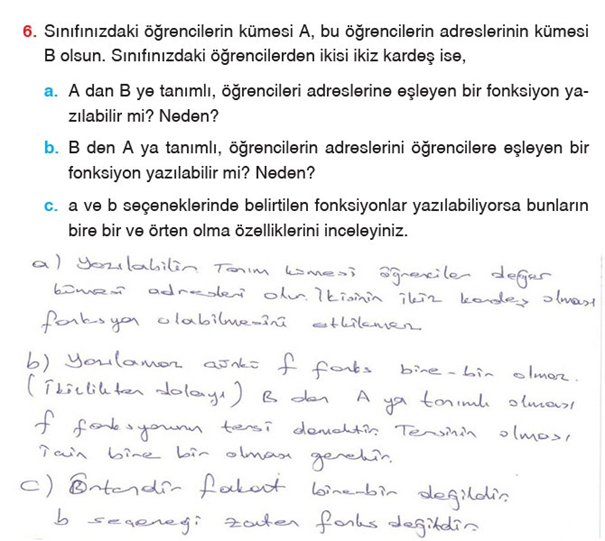 6. Sınıfınızdaki öğrencilerin kümesi A, bu öğrencilerin adreslerinin kümesi
B olsun. Sınıfınızdaki öğrencilerden ikisi ikiz kardeş ise,
a. A dan B ye tanımlı, öğrencileri adreslerine eşleyen bir fonksiyon ya-
zılabilir mi? Neden?
b. B den A ya tanımlı, öğrencilerin adreslerini öğrencilere eşleyen bir
fonksiyon yazılabilir mi? Neden?
c. a ve b seçeneklerinde belirtilen fonksiyonlar yazılabiliyorsa bunların
bire bir ve örten olma özelliklerini inceleyiniz.
a) Yazılabilir Tanım kümesi öğrenciler değer
kümesi adresleri olur. İkisinin ikiz kardeş olması
fonksyon olabilmesini etkilemez
b) Yazılamaz çünkü f fonks bire-bir olmaz.
(İkizlikten dolayı) B den A ya tanımlı olması
f fonksyonun tersi demektir. Tersinin olması
için bire bir olması gerekir.
c) Örtendir fakat bire-bir değildir
b seçeneği zaten fonks değildir